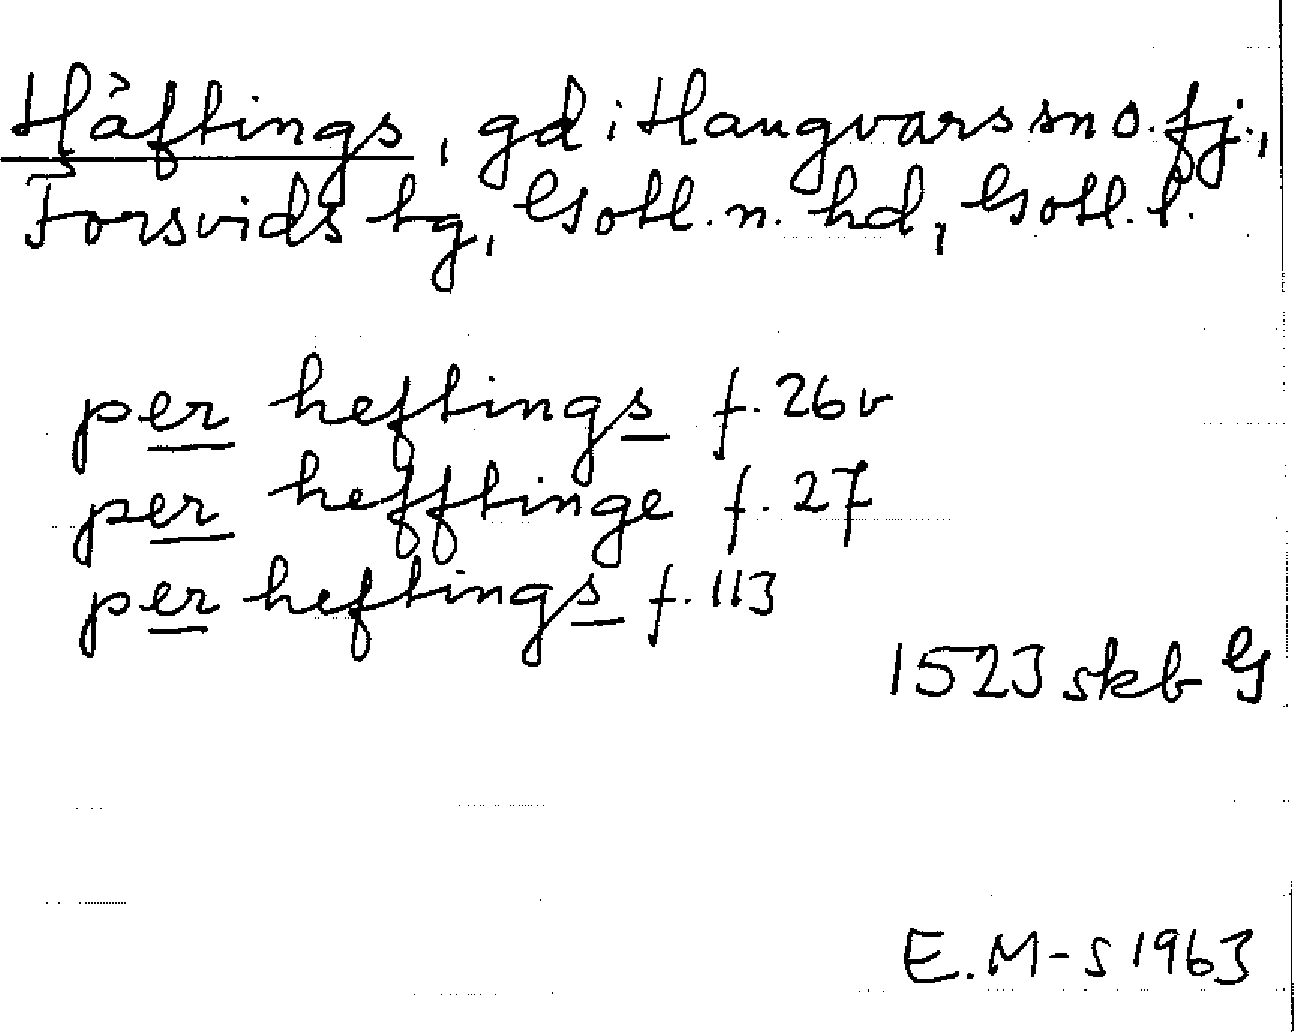 Häftings, gd i Hangvars sn o. fj.,
Forsvids tg, Gotl. n. hd, Gotl. l.
per heftings f. 26v
per hefftinge f. 27
per heftings f. 113
1523 skb G
E. M-S 1963